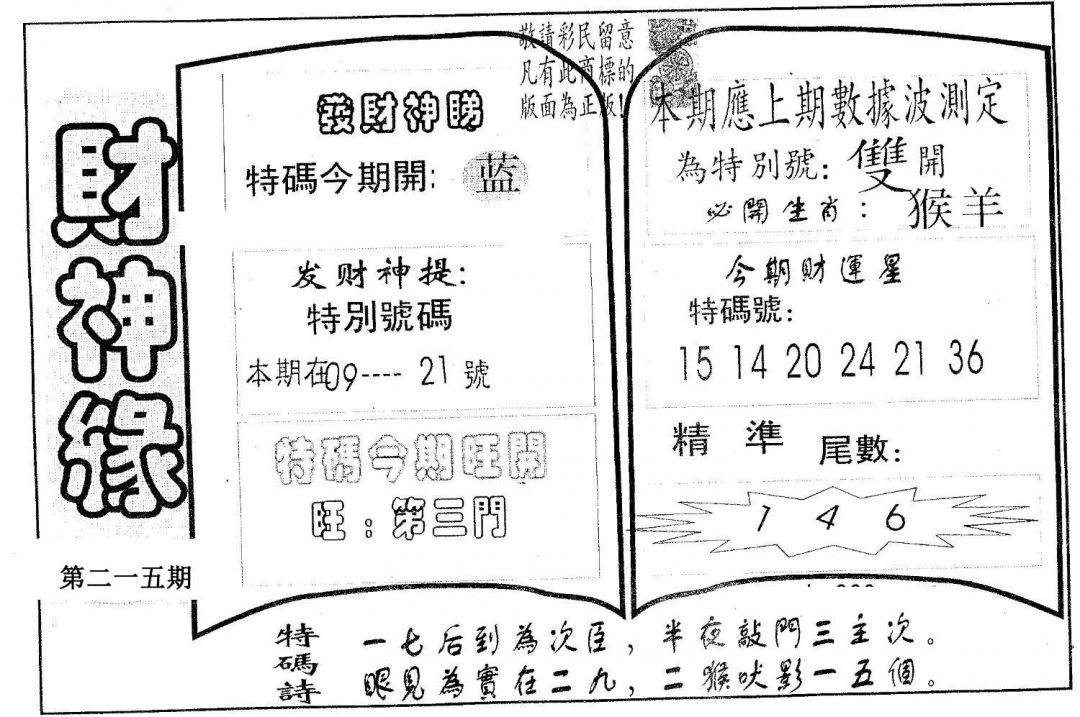 財神緣
第二一五期
敬請彩民留意
凡有此商標的
版面為正版!
發財神睇
特碼今期開: 蓝
发财神提:
特別號碼
本期在09---- 21 號
特碼今期旺開
旺:第三門
本期應上期數據波測定
為特別號: 雙 開
必開生肖: 猴羊
今期財運星
特碼號:
15 14 20 24 21 36
精準 尾數:
1 4 6
特碼詩
一七后到為次臣,半夜敲門三主次。
眼見為實在二九,二猴吠影一五個。